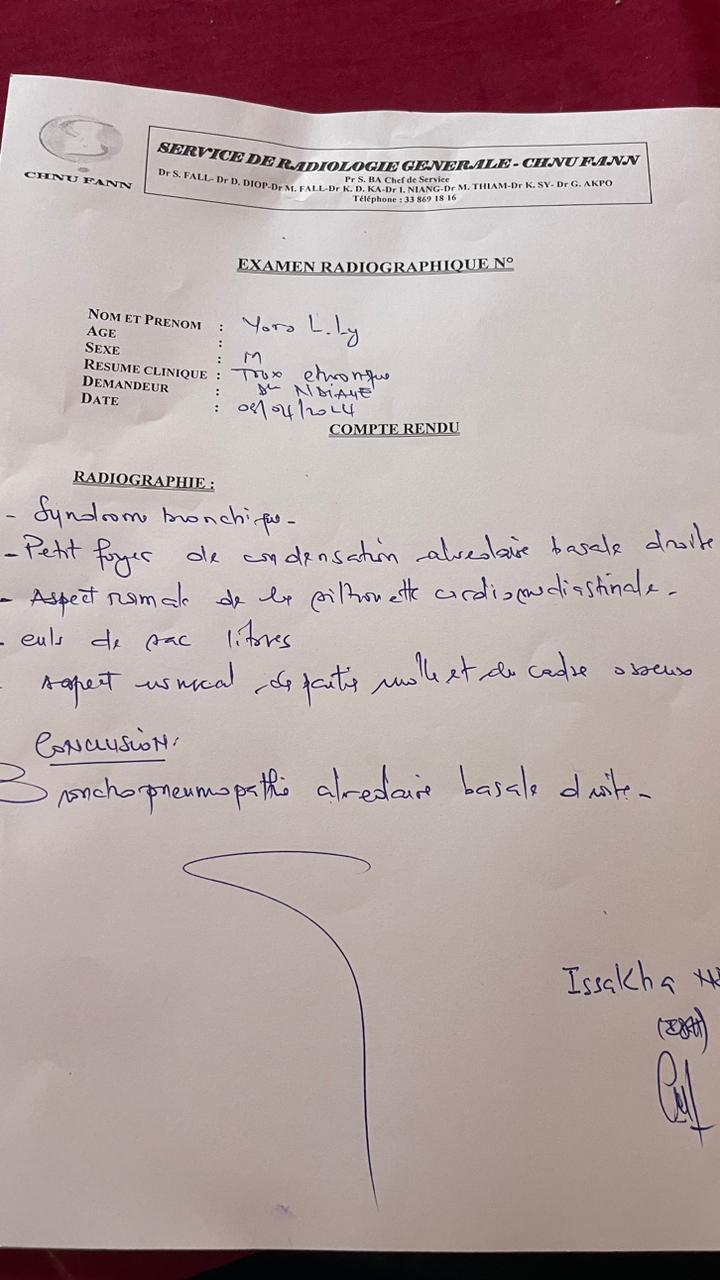 CHNU FANN
SERVICE DE RADIOLOGIE GENERALE - CHNU FANN
Pr S. BA Chef de Service
Dr S. FALL- Dr D. DIOP-Dr M. FALL-Dr K. D. KA-Dr I. NIANG-Dr M. THIAM-Dr K. SY- Dr G. AKPO
Téléphone : 33 869 18 16
EXAMEN RADIOGRAPHIQUE N°
NOM ET PRENOM : Yoro L. Ly
AGE :
SEXE : M
RESUME CLINIQUE : Toux chronique
DEMANDEUR : Dr NDIAYE
DATE : 08/04/2024
COMPTE RENDU
RADIOGRAPHIE :
- Syndrome bronchique -
- Petit foyer de condensation alvéolaire basale droite
- Aspect normale de la silhouette cardiomediastinale -
- culs de sac libres
- Aspect normal de partie molle et du cadre osseux
CONCLUSION :
Bronchopneumopathie alvéolaire basale droite -
Issakha